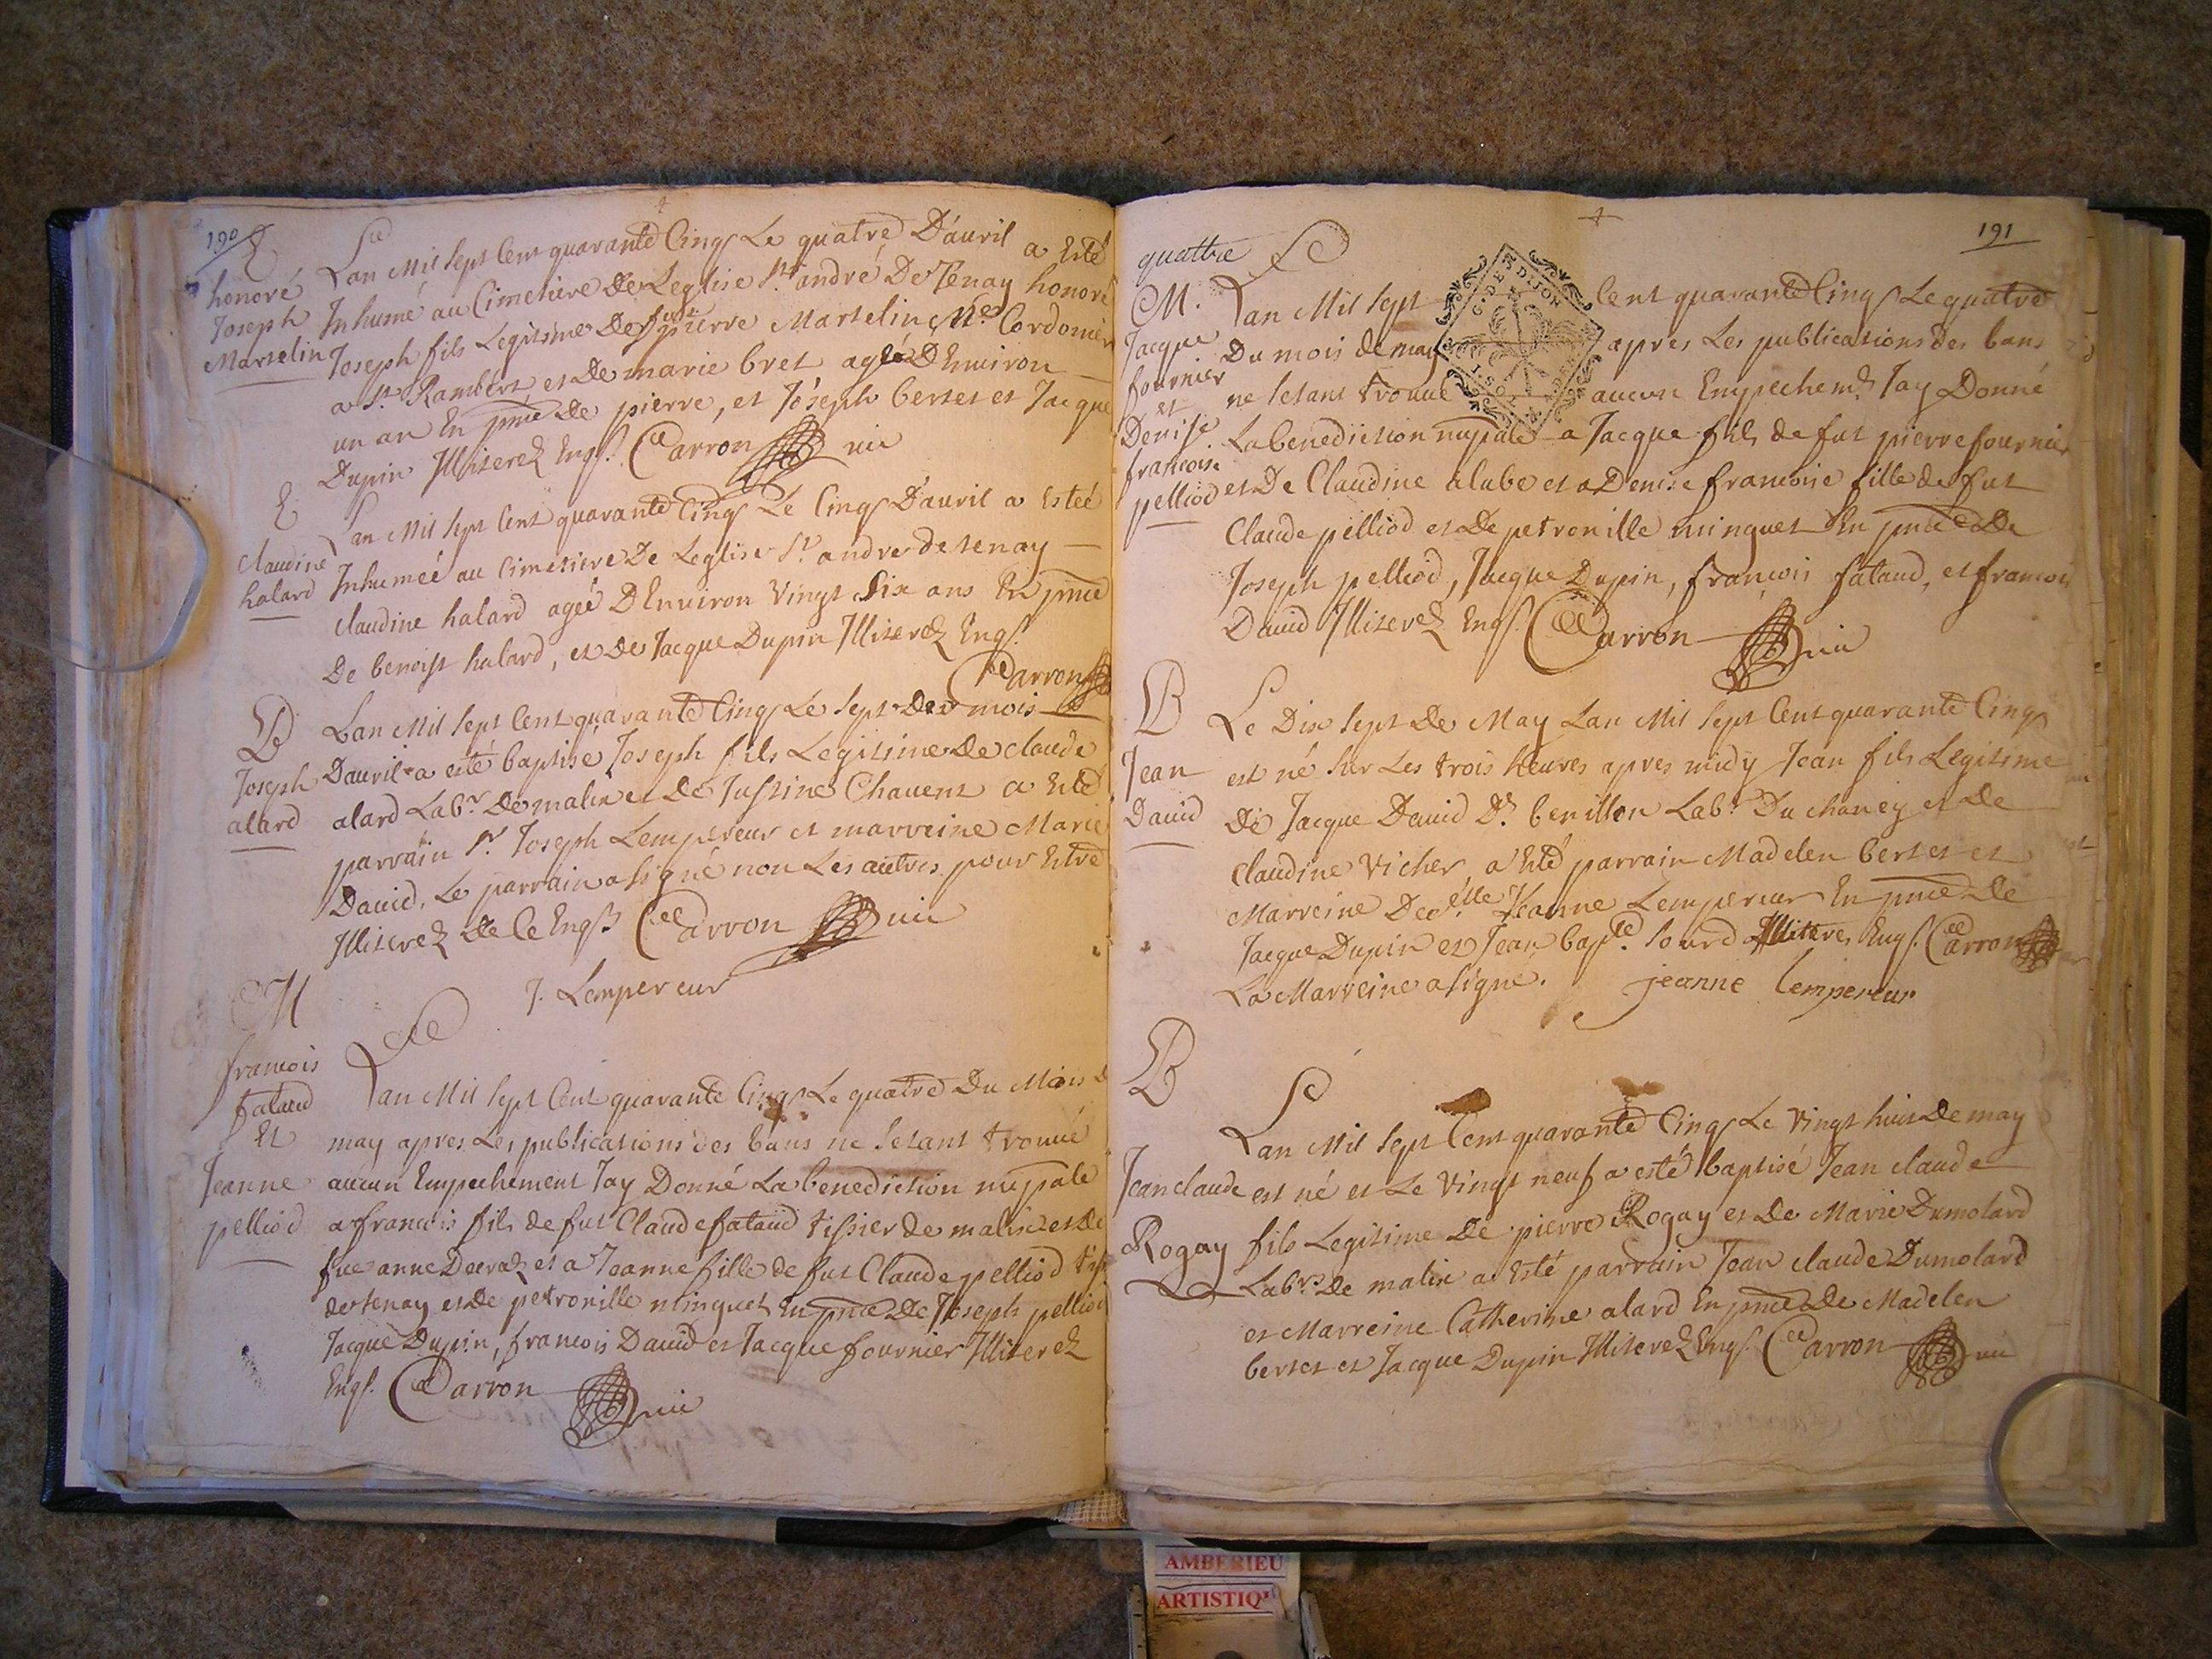 190
E
honoré
Joseph
Martelin
Lan Mil sept Cent quarante Cinq Le quatre D'auril a Esté
Inhumé au Cimetiere De Leglise St andré De Tenay honoré
Joseph fils Legitime De fut pierre Martelin Me Cordonier
a St Rambert, et De marie bret agé D'Enuiron
un an En pnce De pierre, et Joseph bertet et Jacque
Dupin Illiterez Enqs. Carron
E
claudine
halard
Lan Mil sept Cent quarante Cinq Le Cinq D'auril a Esteé
Inhumeé au Cimetiere De Leglise St andre de tenay
claudine halard ageé D'Enuiron Vingt Six ans En pnce
De benoist halard, et De Jacque Dupin Illiterez Enqs.
Carron
B
Joseph
alard
Lan Mil sept Cent quarante Cinq Le sept De mois
Dauril a esté baptisé Joseph fils Legitime De claude
alard Labr. De malix et De Justine Chauent a Esté
parrain Sr. Joseph Lempereur et marreine Marie
Dauid, Le parrain a signé non Les autres pour Estre
Illiterez De Ce Enqs Carron
J. Lempereur
M
francois
fataud
Et
Jeanne
pelliod
Lan Mil sept Cent quarante Cinq Le quatre Du Mois d
may apres Les publications des bans ne setant trouué
aucun Empechement Jay Donné La benediction nuptale
a francois fils de fut Claude fataud tissier de malix et De
fue anne et a Jeanne fille de fut Claude pelliod
de tenay et De petronille minguet En pnce De Joseph pelliod
Jacque Dupin, francois Dauid et Jacque fournier Illiterez
Enqs. Carron
191
quattre
M.
Jacque
fournier
et
Denise
francoise
pelliod
G. DE DIJON
Lan Mil sept Cent quarante Cinq Le quatre
Du mois de may apres Les publications des bans
ne setant trouué aucun Empechemt Jay Donné
La benediction nuptale a Jacque fils de fut pierre fournier
et De Claudine alabe et a Denise francoise fille de fut
Claude pelliod et De petronille minguet En pnce De
Joseph pelliod, Jacque Dupin, françois fataud, et francois
Dauid Illiterez Enqs. Carron
B
Jean
Dauid
Le Dix sept De May Lan Mil sept Cent quarante Cinq
est né sur Les trois heures apres midy Jean fils Legitime
De Jacque Dauid Dt. benillon Labr. Du chaney et De
Claudine Vicher, a Esté parrain Madelen bertet et
Marreine Jeanne Lempereur En pnce De
Jacque Dupin et Jean bapte. sourd Illiteres Enqs. Carron
La Marreine a signé. jeanne lempereur
B
Jean claude
Rogay
Lan Mil sept Cent quarante Cinq Le Vingt huit De may
est né et Le Vingt neuf a esté baptisé Jean claude
fils Legitime De pierre Rogay et De Marie Dumolard
Labrs. De malix a Esté parrain Jean claude Dumolard
et Marreine Catherine alard En pnce De Madelen
bertet et Jacque Dupin Illiterez Enqs. Carron
AMBERIEU
ARTISTIQ